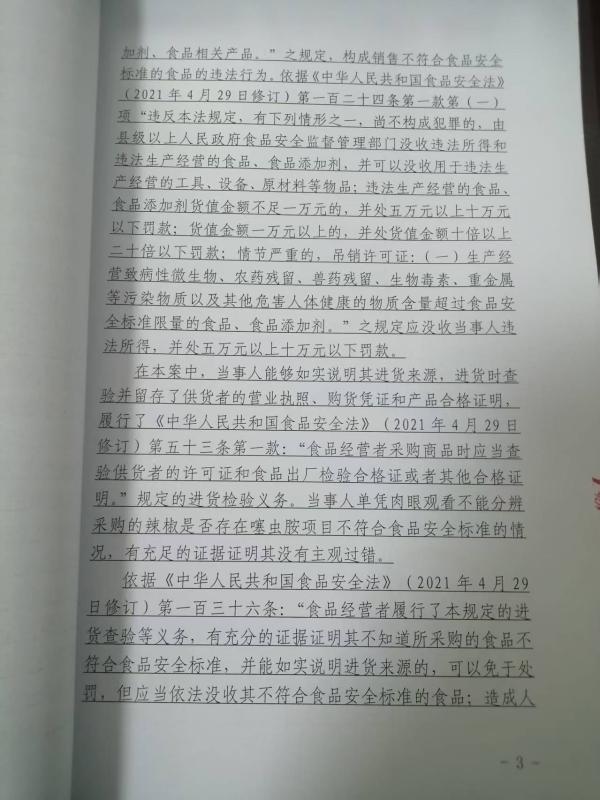 加剂、食品相关产品。”之规定，构成销售不符合食品安全
标准的食品的违法行为。依据《中华人民共和国食品安全法》
（2021年4月29日修订）第一百二十四条第一款第（一）
项“违反本法规定，有下列情形之一，尚不构成犯罪的，由
县级以上人民政府食品安全监督管理部门没收违法所得和
违法生产经营的食品、食品添加剂，并可以没收用于违法生
产经营的工具、设备、原材料等物品；违法生产经营的食品、
食品添加剂货值金额不足一万元的，并处五万元以上十万元
以下罚款；货值金额一万元以上的，并处货值金额十倍以上
二十倍以下罚款；情节严重的，吊销许可证：（一）生产经
营致病性微生物、农药残留、兽药残留、生物毒素、重金属
等污染物质以及其他危害人体健康的物质含量超过食品安
全标准限量的食品、食品添加剂。”之规定应没收当事人违
法所得，并处五万元以上十万元以下罚款。
在本案中，当事人能够如实说明其进货来源，进货时查
验并留存了供货者的营业执照、购货凭证和产品合格证明，
履行了《中华人民共和国食品安全法》（2021年4月29日
修订）第五十三条第一款：“食品经营者采购商品时应当查
验供货者的许可证和食品出厂检验合格证或者其他合格证
明。”规定的进货检验义务。当事人单凭肉眼观看不能分辨
采购的辣椒是否存在噻虫胺项目不符合食品安全标准的情
况，有充足的证据证明其没有主观过错。
依据《中华人民共和国食品安全法》（2021年4月29
日修订）第一百三十六条：“食品经营者履行了本规定的进
货查验等义务，有充分的证据证明其不知道所采购的食品不
符合食品安全标准，并能如实说明进货来源的，可以免于处
罚，但应当依法没收其不符合食品安全标准的食品；造成人
- 3 -